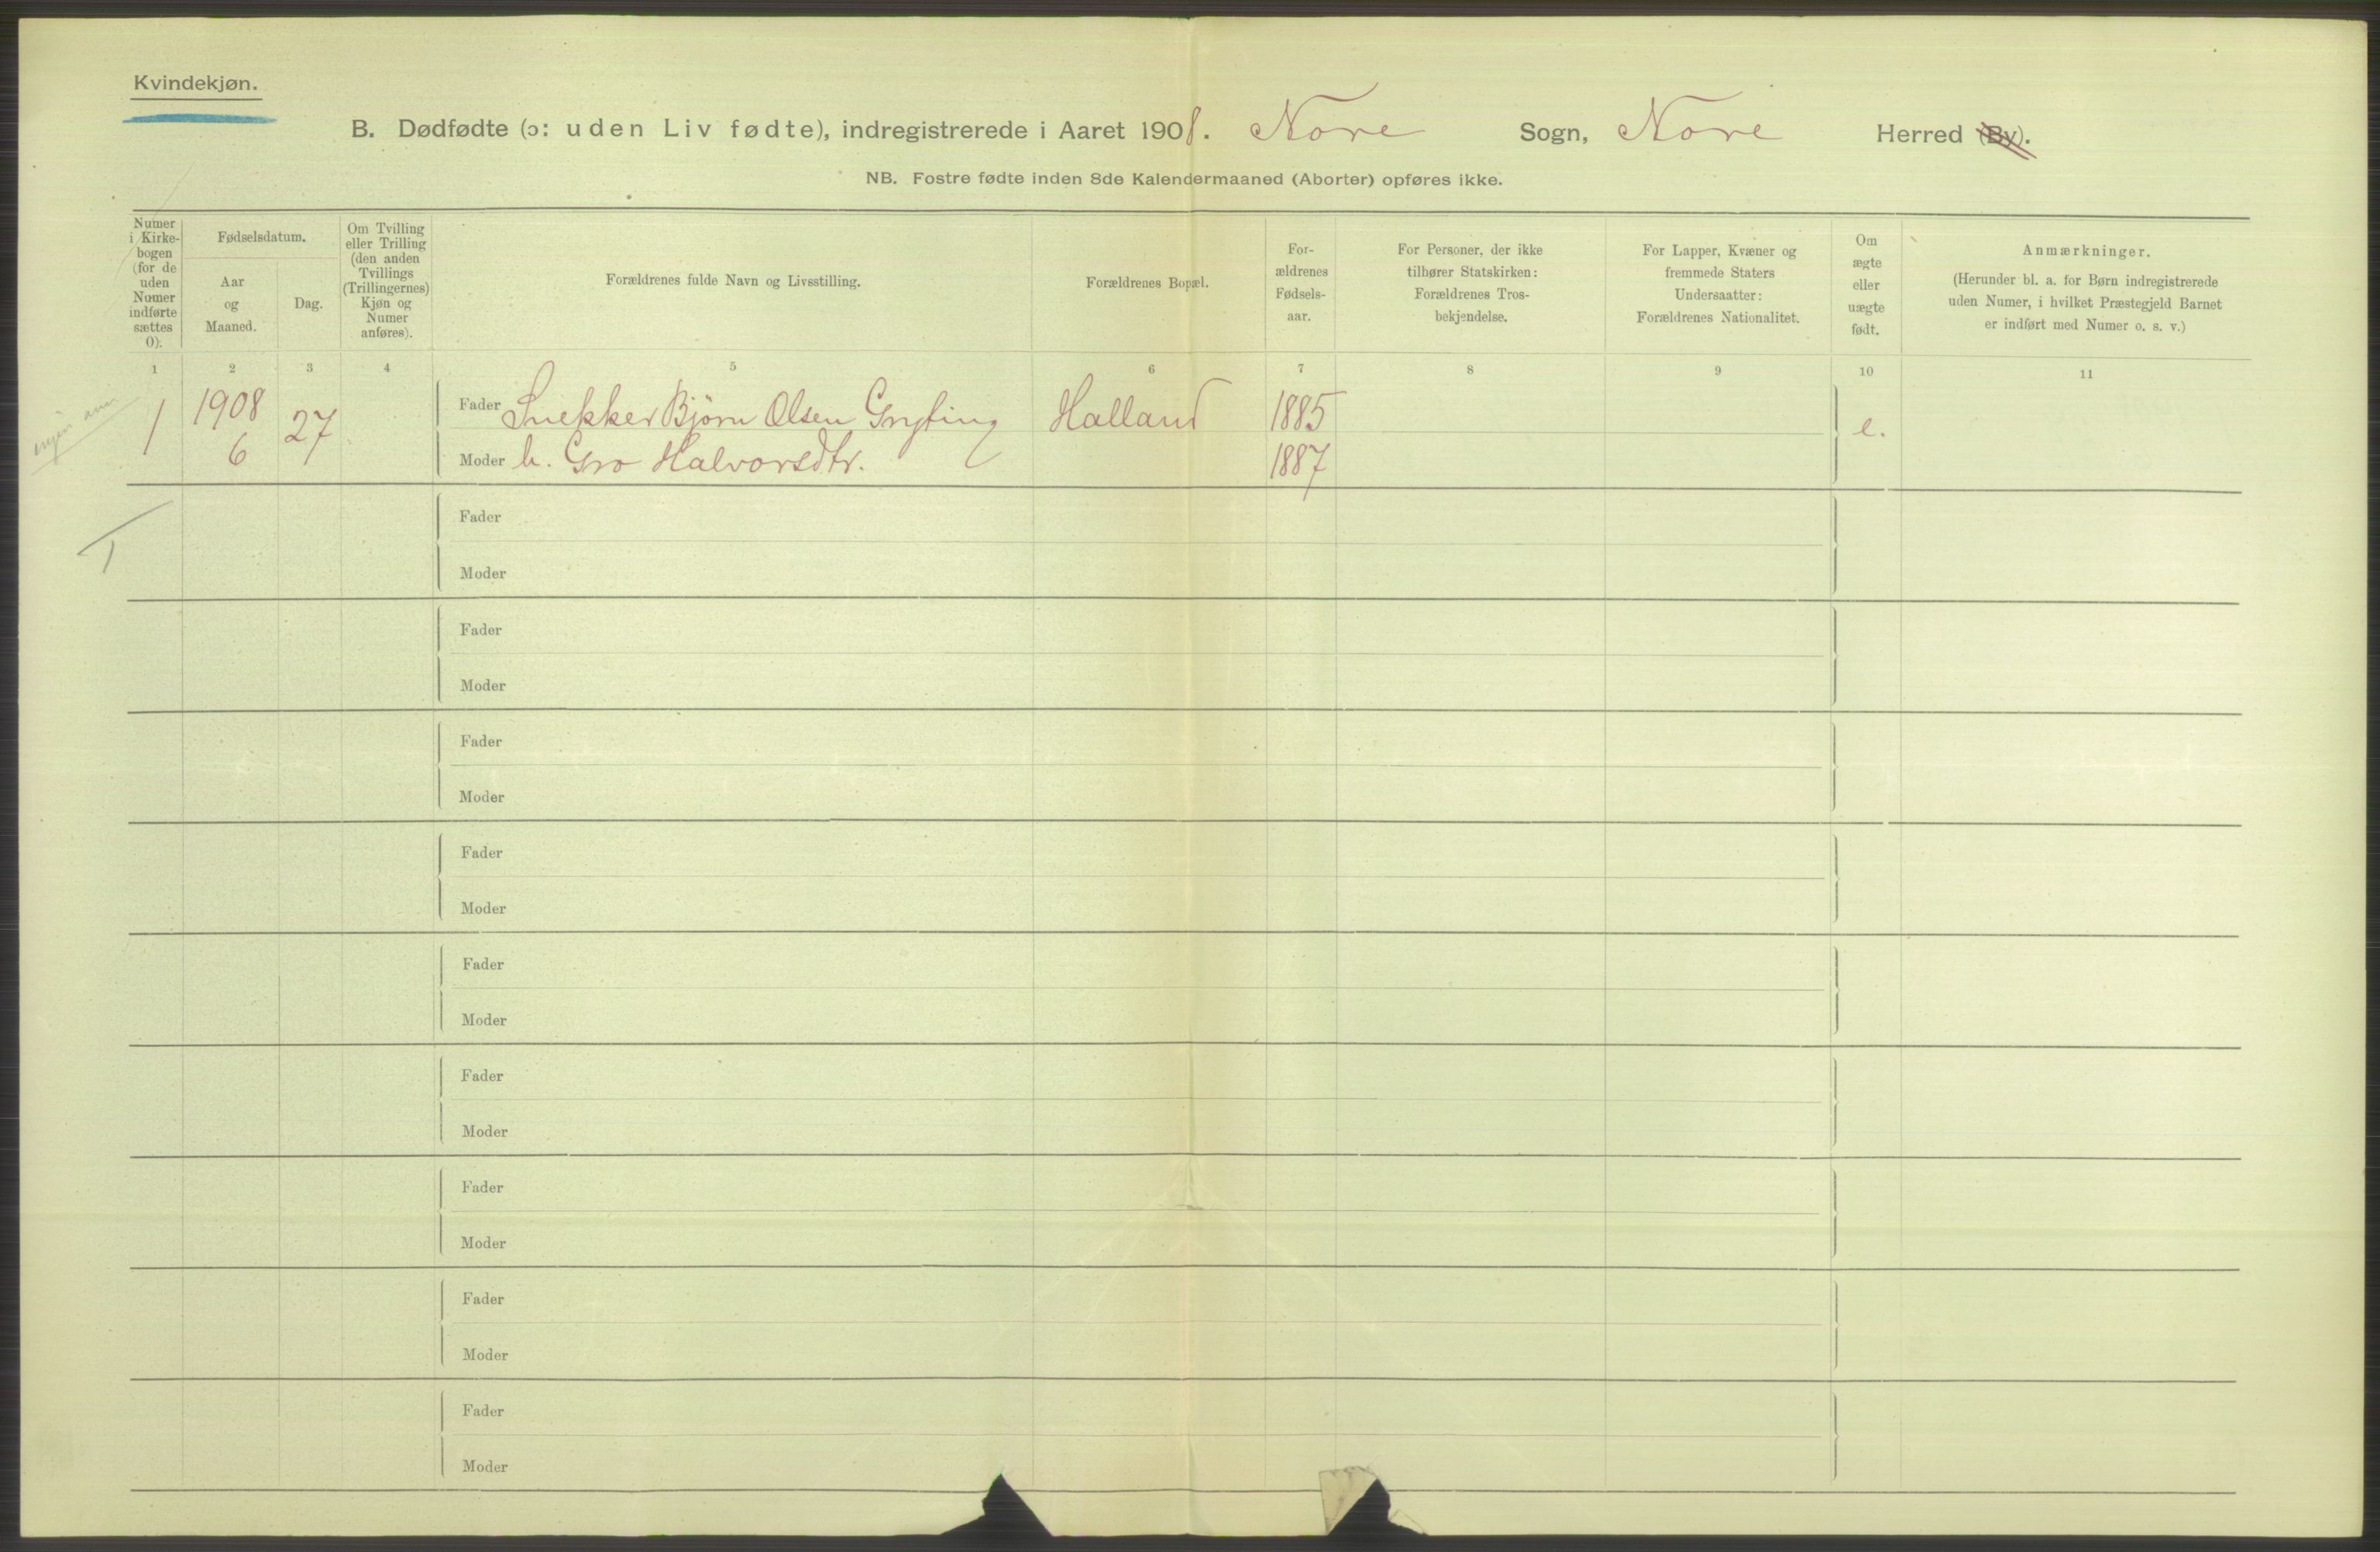 Kvindekjøn.
B. Dødfødte (ɔ: uden Liv fødte), indregistrerede i Aaret 1908. Nore Sogn, Nore Herred (By).
NB. Fostre fødte inden 8de Kalendermaaned (Aborter) opføres ikke.
Numer
i Kirke-
bogen
(for de
uden
Numer
indførte
sættes
0).
Fødselsdatum.
Aar
og
Maaned.
Dag.
Om Tvilling
eller Trilling
(den anden
Tvillings
(Trillingernes)
Kjøn og
Numer
anføres).
Forældrenes fulde Navn og Livsstilling.
Forældrenes Bopæl.
For-
ældrenes
Fødsels-
aar.
For Personer, der ikke
tilhører Statskirken:
Forældrenes Tros-
bekjendelse.
For Lapper, Kvæner og
fremmede Staters
Undersaatter:
Forældrenes Nationalitet.
Om
ægte
eller
uægte
født.
Anmærkninger.
(Herunder bl. a. for Børn indregistrerede
uden Numer, i hvilket Præstegjeld Barnet
er indført med Numer o. s. v.)
1 2 3 4 5 6 7 8 9 10 11
1 1908 27 Fader Snekker Bjørn Olsen Halland 1885 e.
6 Moder h. Gro Halvorsdtr. 1887
Fader
Moder
Fader
Moder
Fader
Moder
Fader
Moder
Fader
Moder
Fader
Moder
Fader
Moder
Fader
Moder
Fader
Moder